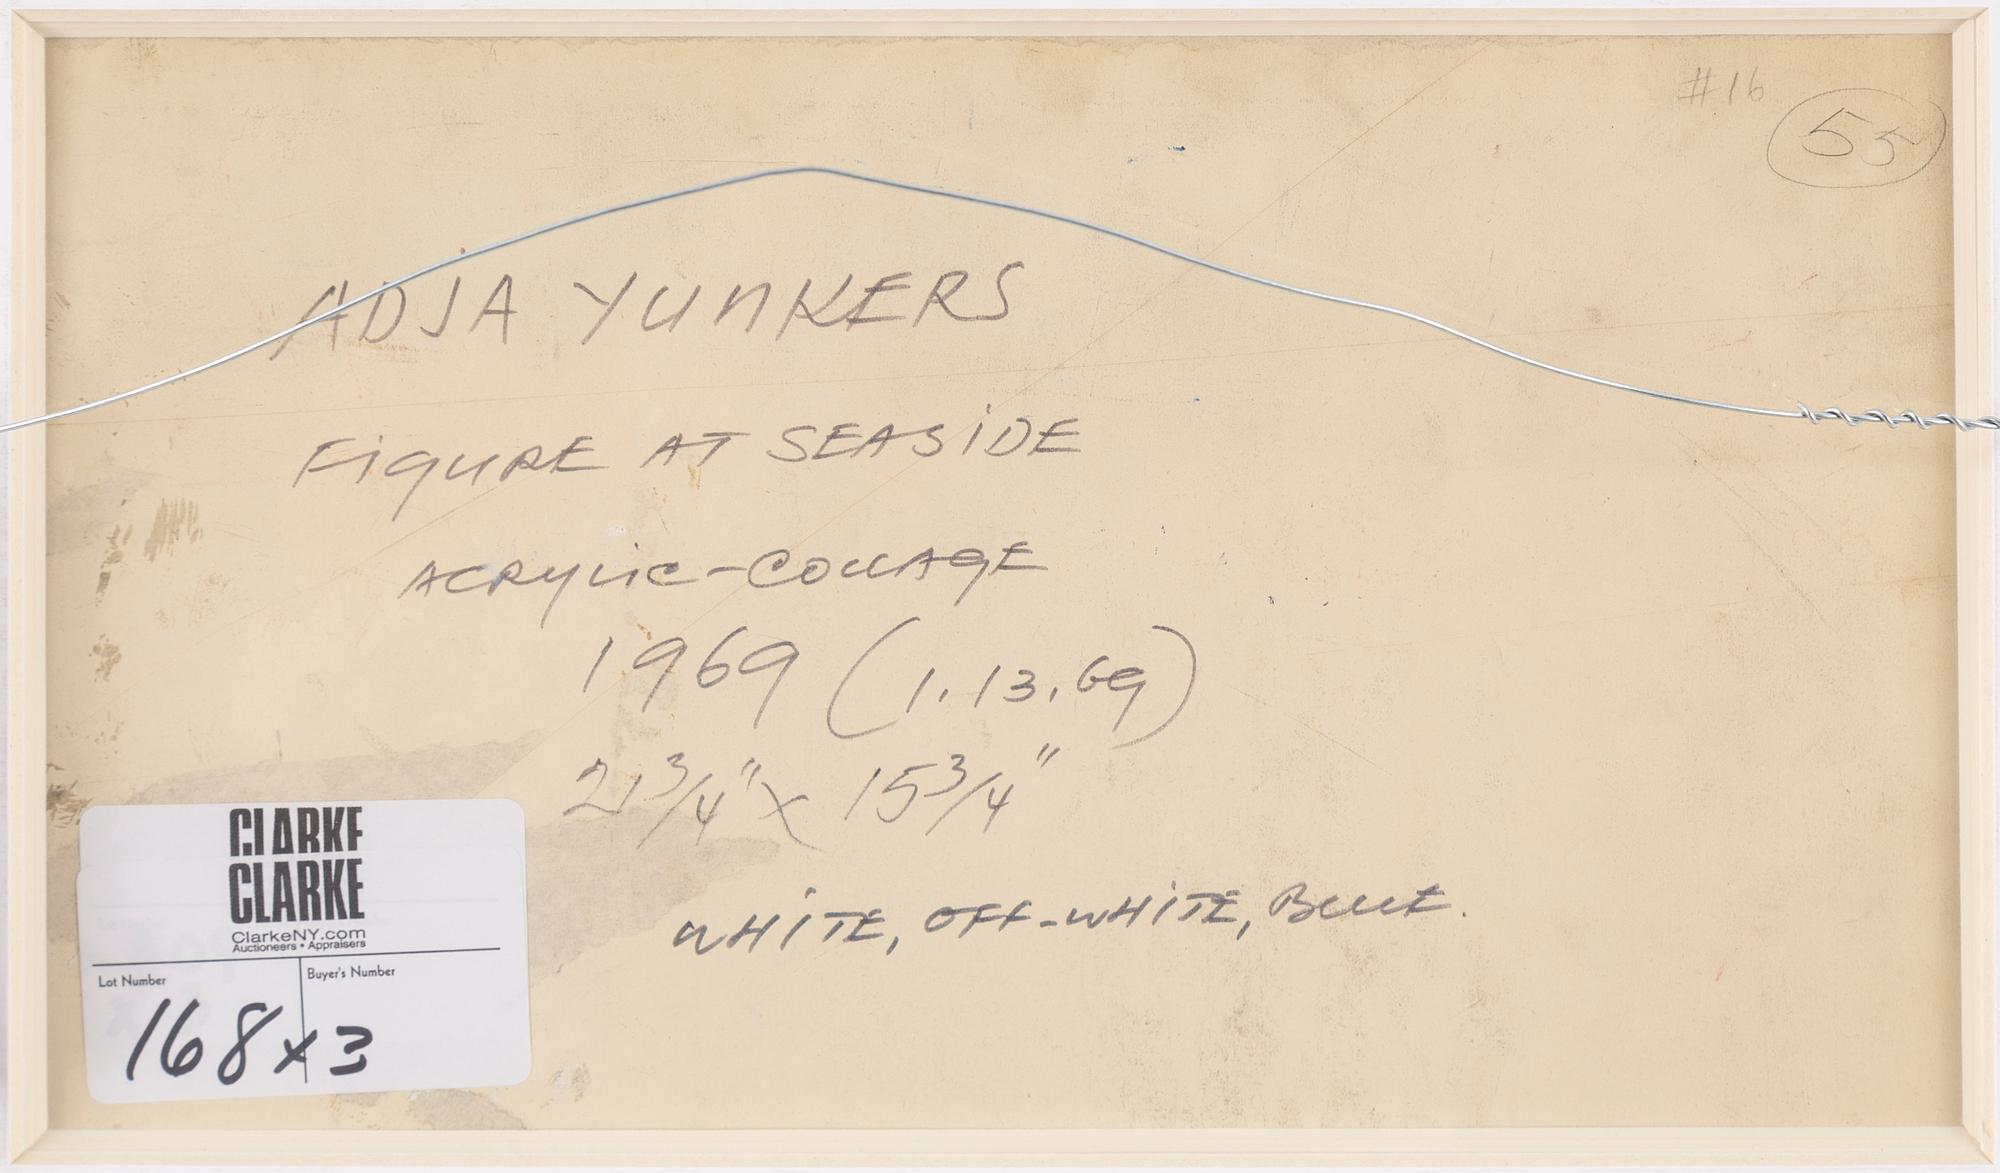 #16
55
ADJA YUNKERS
FIGURE AT SEASIDE
ACRYLIC-COLLAGE
1969 (1.13.69)
21 3/4" x 15 3/4"
WHITE, OFF-WHITE, BLUE.
CLARKE
CLARKE
ClarkeNY.com
Auctioneers • Appraisers
Lot Number
Buyer's Number
168x3